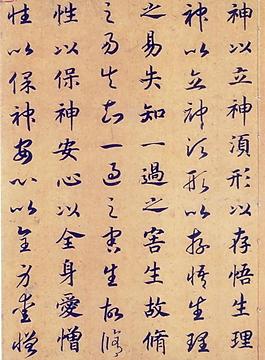 神以立神湏形以存悟生理
神以立神须形以存悟生理
之易失知一過之害生故脩
之易失知一過之害生故脩
性以保神安心以全身愛憎
性以保神安心以全身愛憎